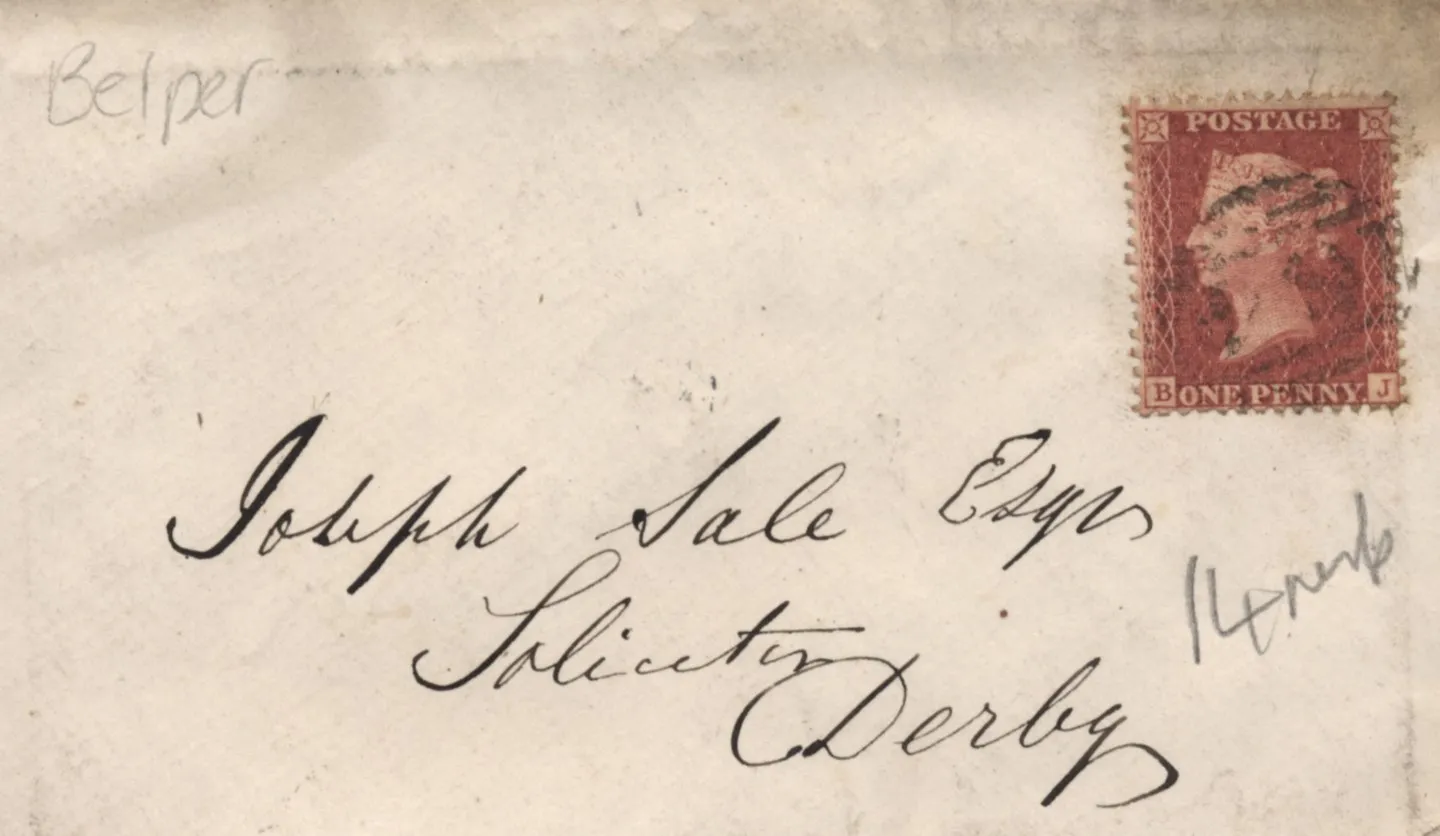 Belper
POSTAGE
B ONE PENNY J
Joseph Sale Esqr
14 perfs
Solicitor
Derby